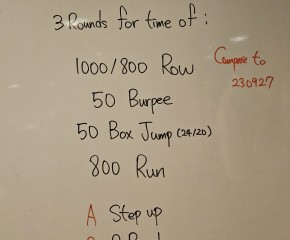 3 Rounds for time of :
1000/800 Row
Compare to
230927
50 Burpee
50 Box Jump (24/20)
800 Run
A Step up